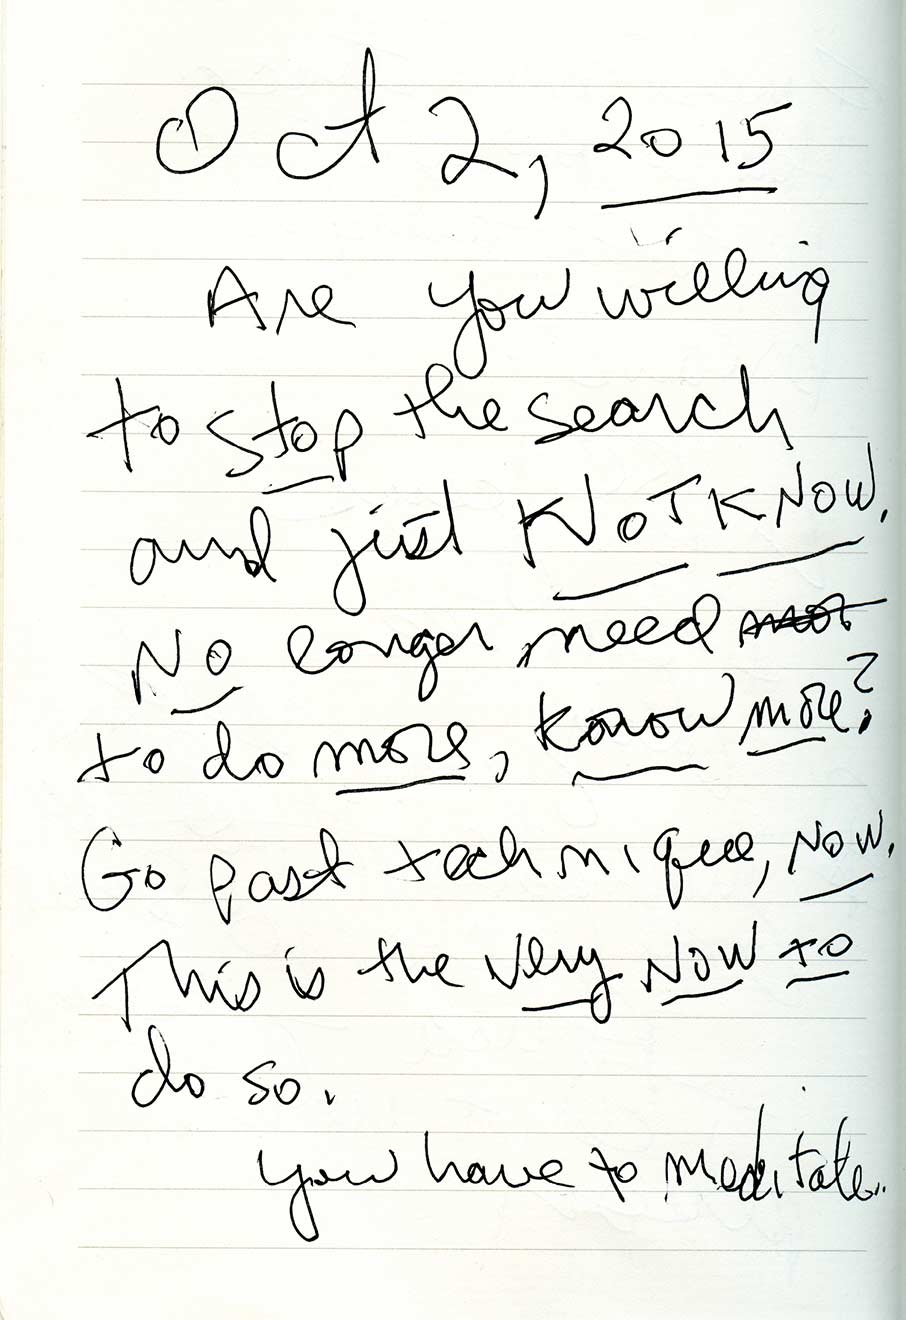 Oct 2, 2015
Are you willing
to stop the search
and just NOT KNOW.
No longer need
to do more, know more?
Go past technique, NOW.
This is the very NOW to
do so.
You have to meditate..